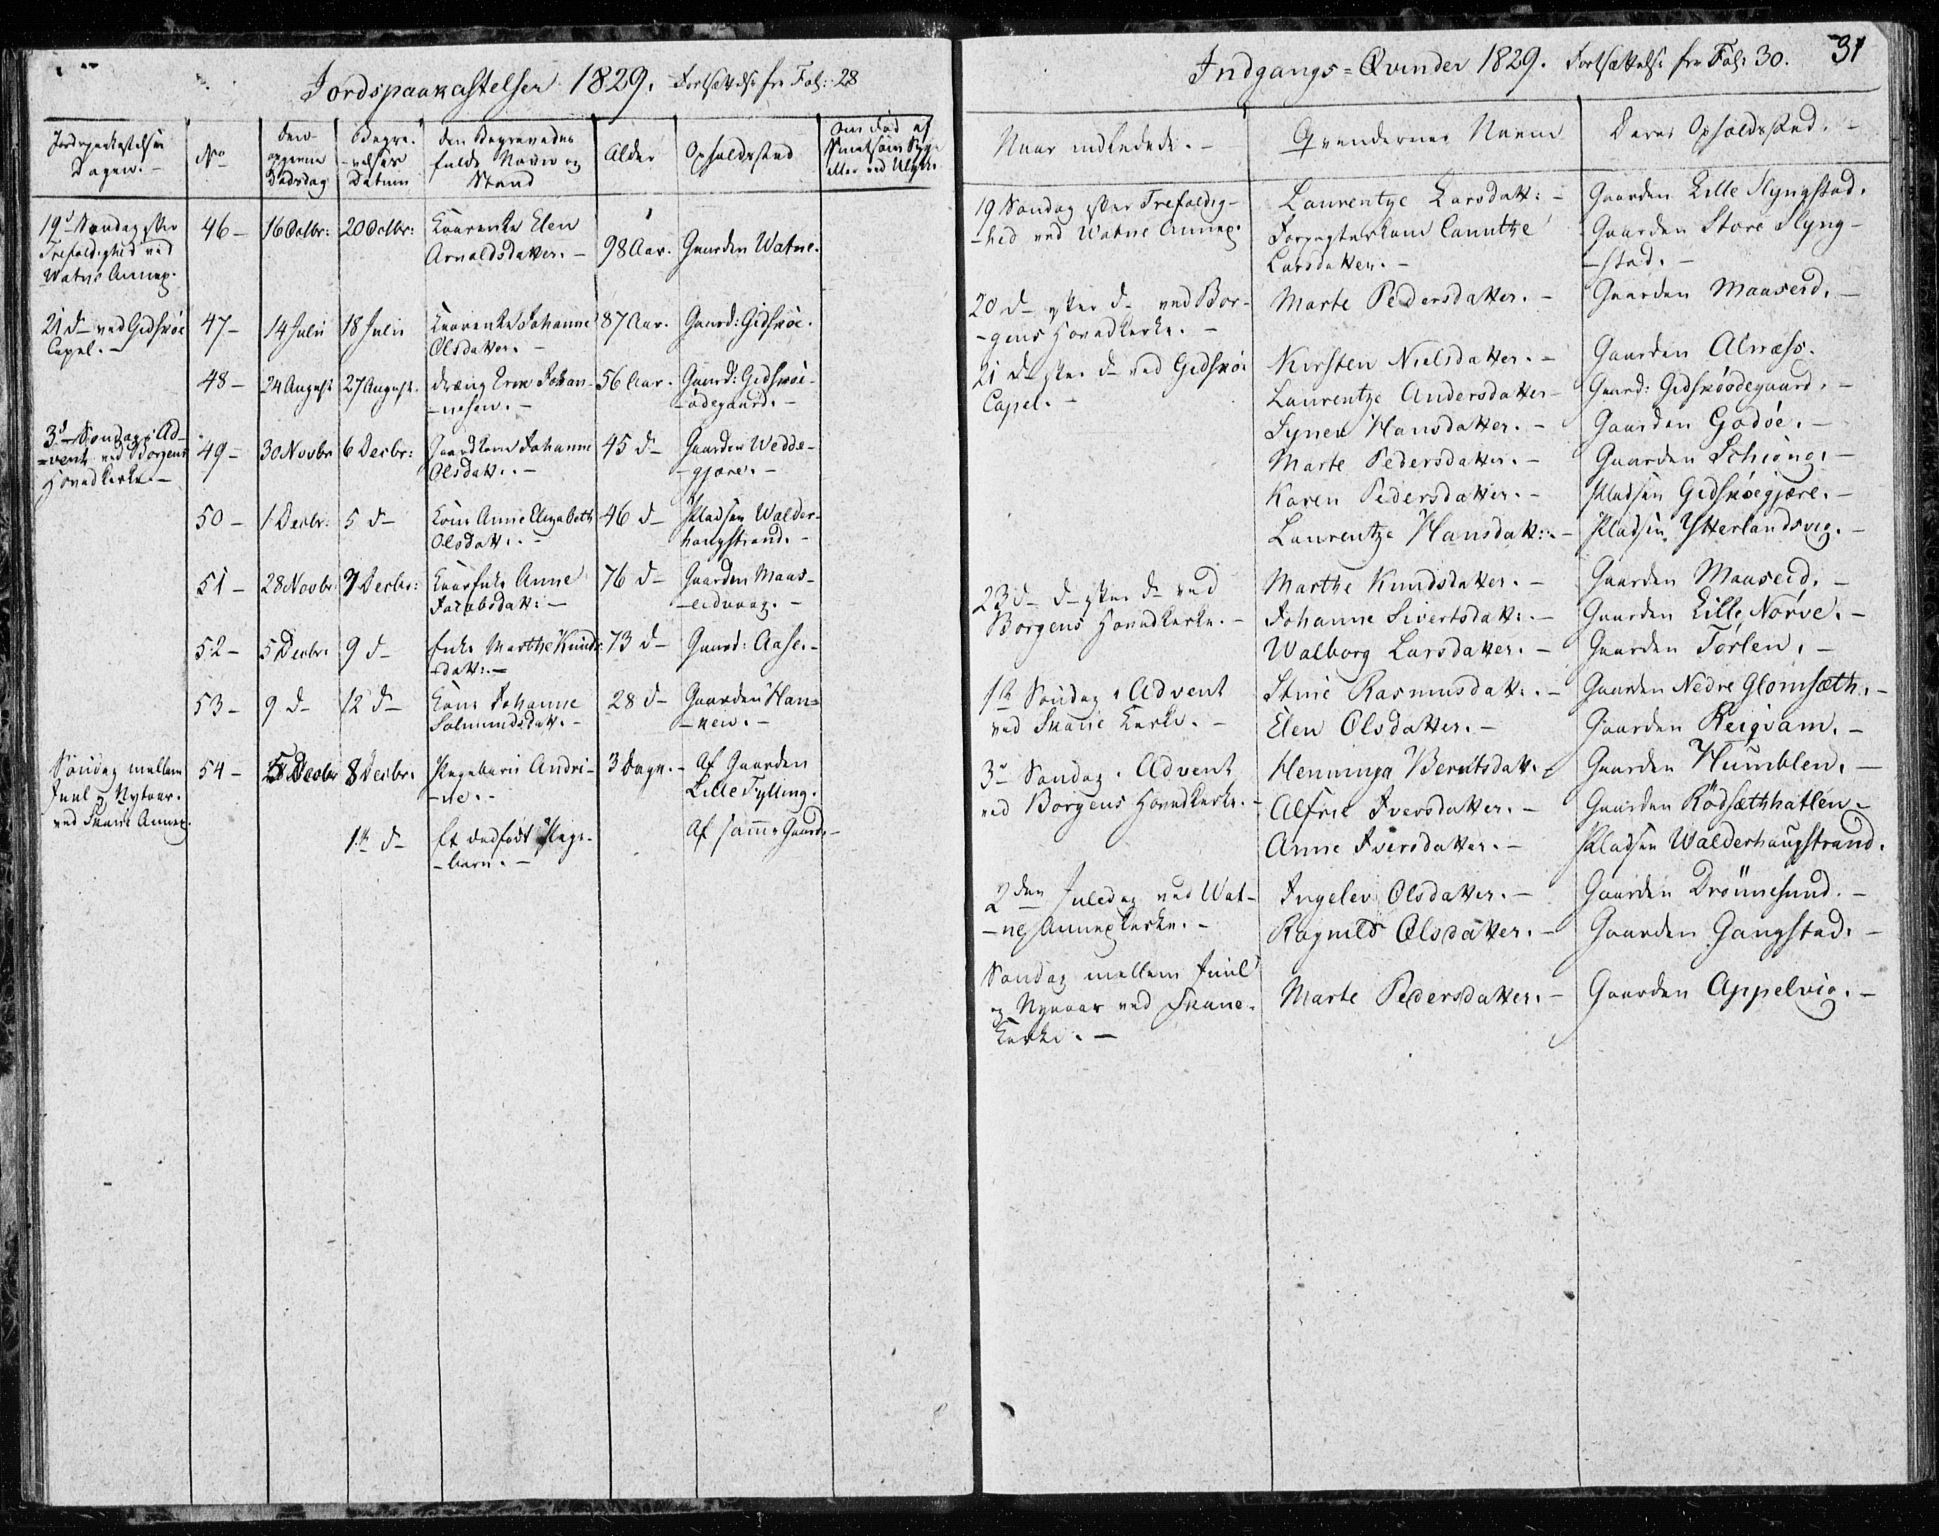 Jordspaakastelser 1829. Fortsættelse fra Fol: 28
Jordspaakastelsen
Dagen. -
No
Den
Dødsdag
Begra-
-velses
Datum
Den Begravedes
fulde Navn og
Stand
Alder
Opholdsstad
Om død af
eller ved Ulykke
19d Søndag efter
Trefoldighed ved
Watne Annex.
46 -
16 Octbr:
20 Octbr:
Kaarenke Elen
Arnoldsdatter. -
98 Aar.
Gaarden Watne.
21 d- ved Gidskøe
Capel. -
47 -
14 Julii
18 Julii
Kaarenke Johanne
Olsdatter. -
87 Aar.
Gaard: Gidskøe.
48 -
24 August
27 August.
Dreng Eric Johan-
-nesen. -
56 Aar.
Gaard: Gidskøe-
-ødegaard. -
3d Søndag i Ad-
-vent ved Borgens
Hovedkerke. -
49 -
30 Novbr
6 Decbr:
Johanne
Olsdatt. -
45 d-
Gaarden Wedde-
-gjære. -
50 -
1 Decbr:
5 d-
Kone Anne Elisabeth
Olsdatt:. -
46 d-
Pladsen Walder-
haugstrand. -
51 -
28 Novbr:
7 Decbr:
Anne
Jacobsdatt: -
76 d-
Gaarden Maas-
-eidvaag. -
52 -
5 Decbr:
9 d-
Enke Marthe Knuds-
-datt:. -
73 d-
Gaard: Aase. -
53 -
9 d-
12 d-
Kone Johanne
Salmundsdatt. -
28 d-
Gaarden Han-
-ken. -
Søndag mellem
Juul og Nytaar.
ved Skarie Annex.
54 -
5 Decbr
8 Decbr.
Pigebarn Andri-
-ne. -
3 Dage. -
Af Gaarden
Lille Tylling.
1ste d-
Et dødfødt Pige-
-barn. -
Af samme Gaard. -
31
Indgangs-Qvinder 1829. Fortsættelse fra Fol: 30.
Naar indledede. -
Qvindernes Navne
Deres Opholdsstad. -
19 Søndag efter Trefoldig-
-hed ved Watne Annex.
Laurentze Larsdatt: -
Gaarden Lille Slyngstad.
Forpagterkone Canutze
Larsdatter. -
Gaarden Store Slyng-
-stad. -
20 d- efter d- ved Bor-
-gens Hovedkerke. -
Marte Pedersdatter. -
Gaarden Maaseid. -
21 d- efter d- ved Gidskøe
Capel. -
Kirsten Nielsdatter. -
Gaarden Alnæss.
Laurentze Andersdatter -
Gaard: Gidskøødegaard. -
Synev Hansdatter. -
Gaarden Godøe. -
Marte Pedersdatter. -
Gaarden Schiong. -
Karen Pedersdatter. -
Pladsen Gidskøegjære. -
Laurentze Hansdatt:. -
Pladsen Ytterlandsvig. -
23 d- d- efter d- ved
Borgens Hovedkerke. -
Marthe Knudsdatter. -
Gaarden Maaseid. -
Johanne Sivertsdatt:. -
Gaarden Lille Nørve. -
Walborg Larsdatter. -
Gaarden Torlen. -
1ste Søndag i Advent
ved Skarie Kerke. -
Stine Rasmusdatt:. -
Gaarden Nedre Glomsæth. -
Elen Olsdatter. -
Gaarden Reiqvam. -
3d Søndag i Advent
ved Borgens Hovedkerke. -
Henninga Berntsdatt. -
Gaarden Humblen. -
Alfrie Iversdatter. -
Gaarden Rødsæthhatlen -
Anne Iversdatter. -
Pladsen Walderhaugstrand.
2den Juledag ved Wat-
-ne Annexkerke. -
Ingelev Olsdatter. -
Gaarden Drønnesund. -
Ragnild Olsdatter. -
Gaarden Gangstad. -
Søndag mellem Juul
og Nyaar ved Skarie
Kerke. -
Marte Pedersdatter. -
Gaarden Appelvig. -